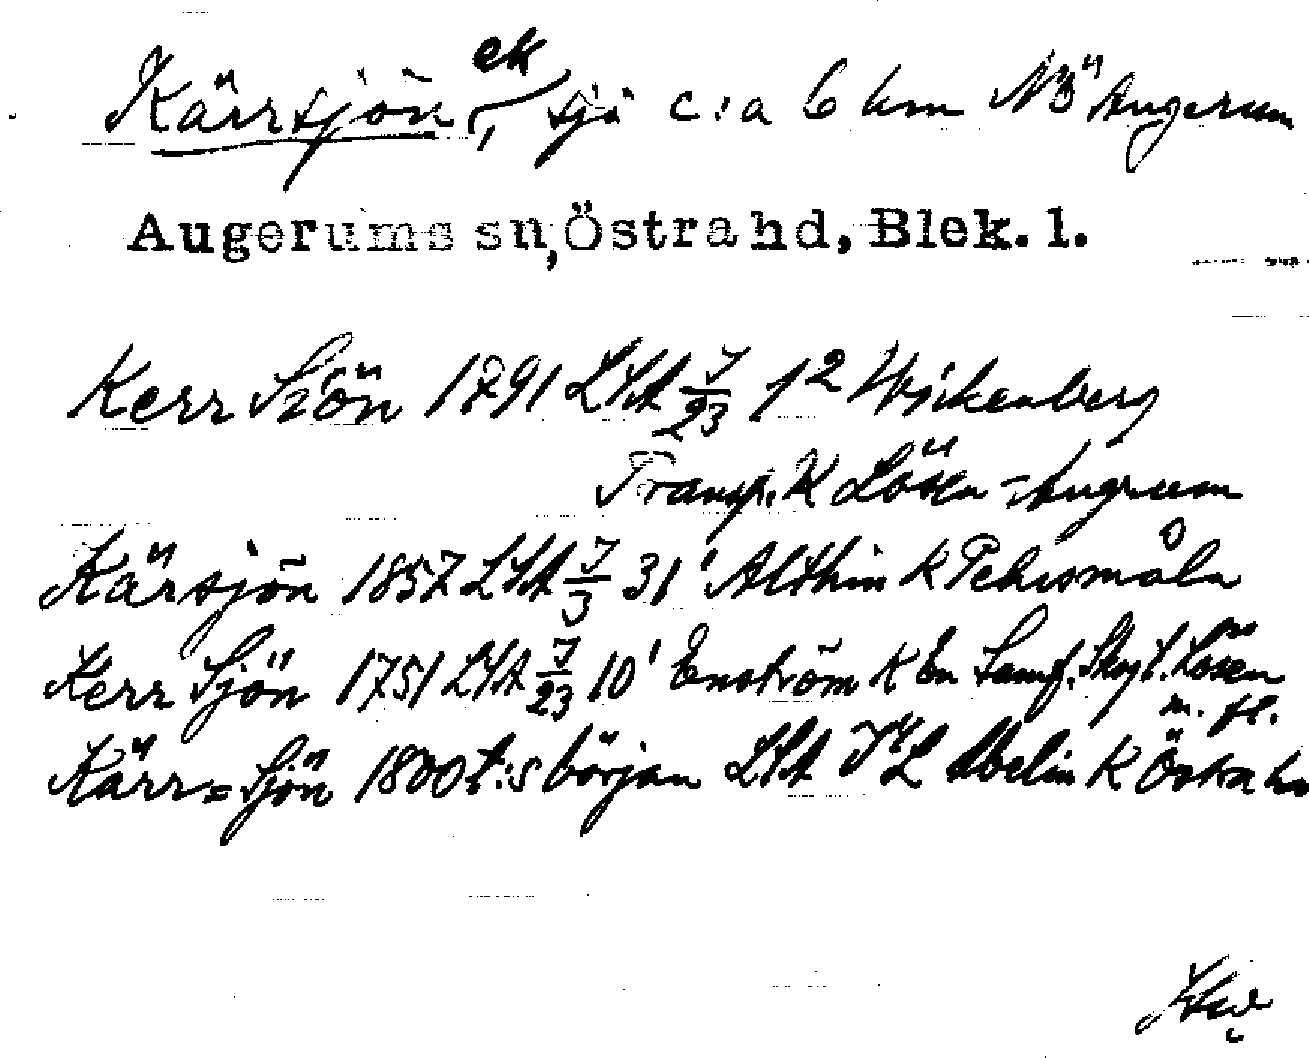 Kärrsjön, ek sjö c:a 6 km NÖ Augerum
Augerums sn, Östra hd, Blek. l.
Kerr Siön 1791 LSA J/23 1² Wickenberg
Transp. K Lösen - Augerum
Kärsjön 1857 LSA J/3 31' Althin K Pehrsmåla
Kerr Sjön 1751 LSA J/23 10' Enström K En Samf. Skog t. Lösen
m. fl.
Kärr=Sjön 1800t:s början LSA Abelin K Östra h